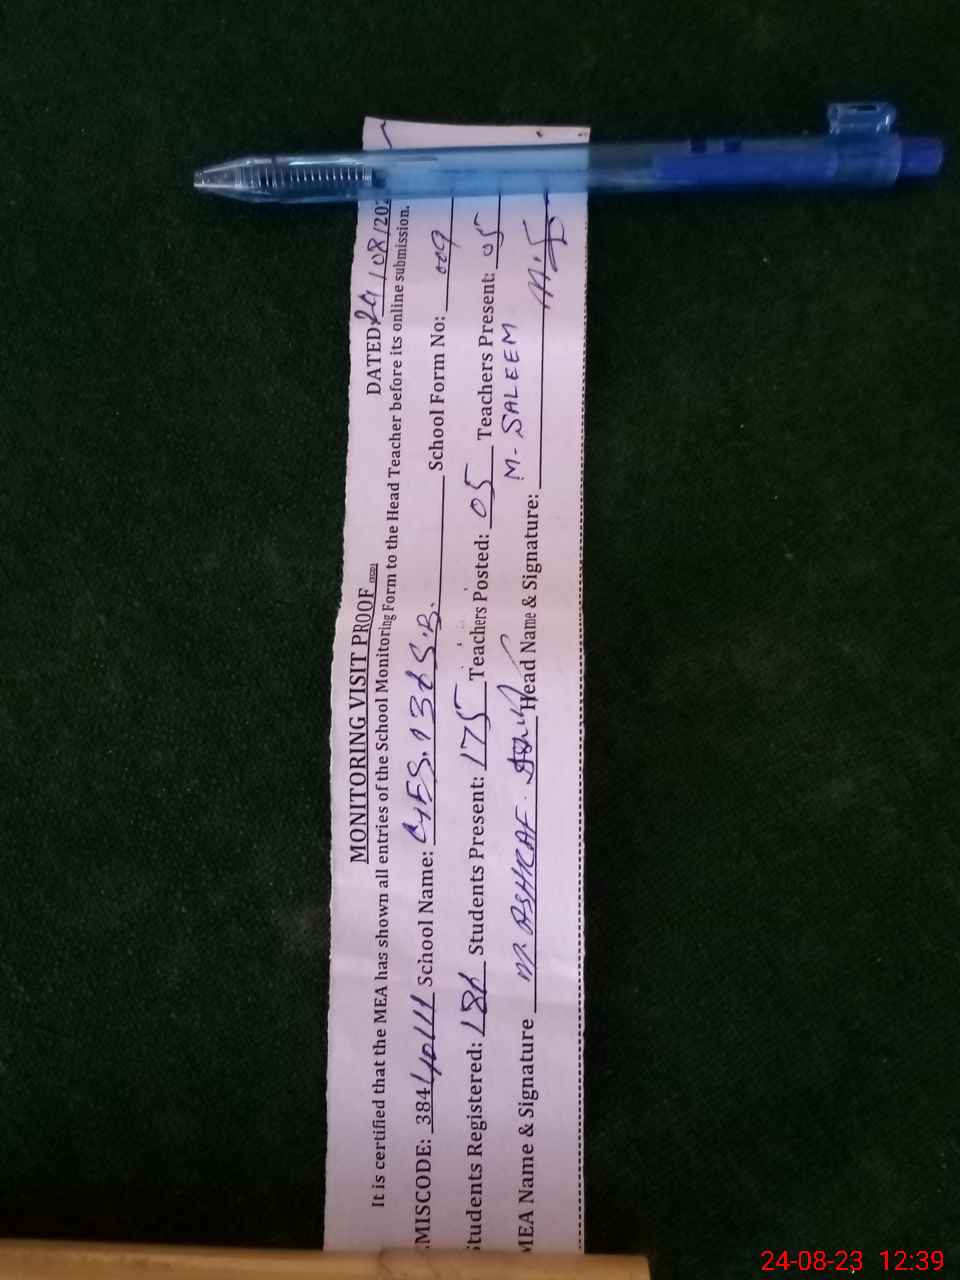 MONITORING VISIT PROOF
DATED: 24/08/202
It is certified that the MEA has shown all entries of the School Monitoring Form to the Head Teacher before its online submission.
EMISCODE: 38440111 School Name: GES. 136 S.B. School Form No: 009
Students Registered: 186 Students Present: 175 Teachers Posted: 05 Teachers Present: 05
MEA Name & Signature M. ASHRAF. Head Name & Signature: M. SALEEM
24-08-23 12:39